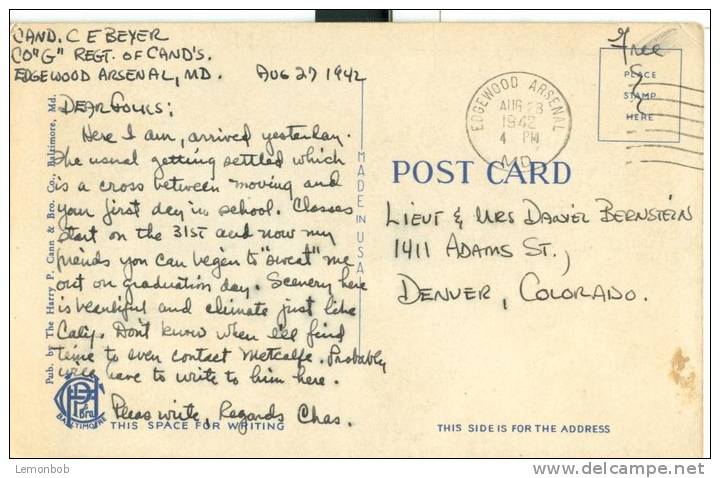 CAND. C E BEYER
CO "G" REGT. OF CAND'S.
EDGEWOOD ARSENAL, MD. AUG 27 1942
DEAR FOLKS:
Here I am, arrived yesterday.
The usual getting settled which
is a cross between moving and
your first day in school. Classes
start on the 31ST and now my
friends you can begin to "sweat" me
out on graduation day. Scenery here
is beautiful and climate just like
Calif. Don't know when I'll find
time to even contact Metcalfe. Probably
will have to write to him here.
Pleas write, Regards Chas.
THIS SPACE FOR WRITING
Pub. by The Harry P. Cann & Bro. Co., Baltimore, Md.
& Bro.
BALTIMORE
MADE IN USA
Free
PLACE
STAMP
HERE
EDGEWOOD ARSENAL
AUG 28
1942
4 PM
MD.
POST CARD
LIEUT & MRS DANIEL BERNSTEIN
1411 ADAMS ST.,
DENVER, COLORADO.
THIS SIDE IS FOR THE ADDRESS
Lemonbob
delcampe.net